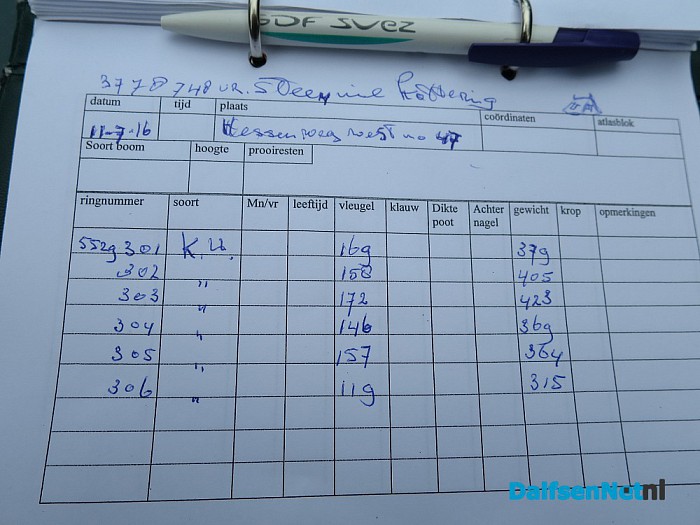 GDF SUEZ
3778748 vr. Steenuil
datum tijd plaats coördinaten atlasblok
11-7-16 Hessenweg west no 47
Soort boom hoogte prooiresten
ringnummer soort Mn/vr leeftijd vleugel klauw Dikte poot Achter nagel gewicht krop opmerkingen
5529301 K.U. 169 379
302 " 158 405
303 " 172 423
304 " 146 369
305 " 157 364
306 " 119 315
DalfsenNet.nl